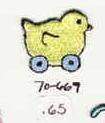 70-669
.65